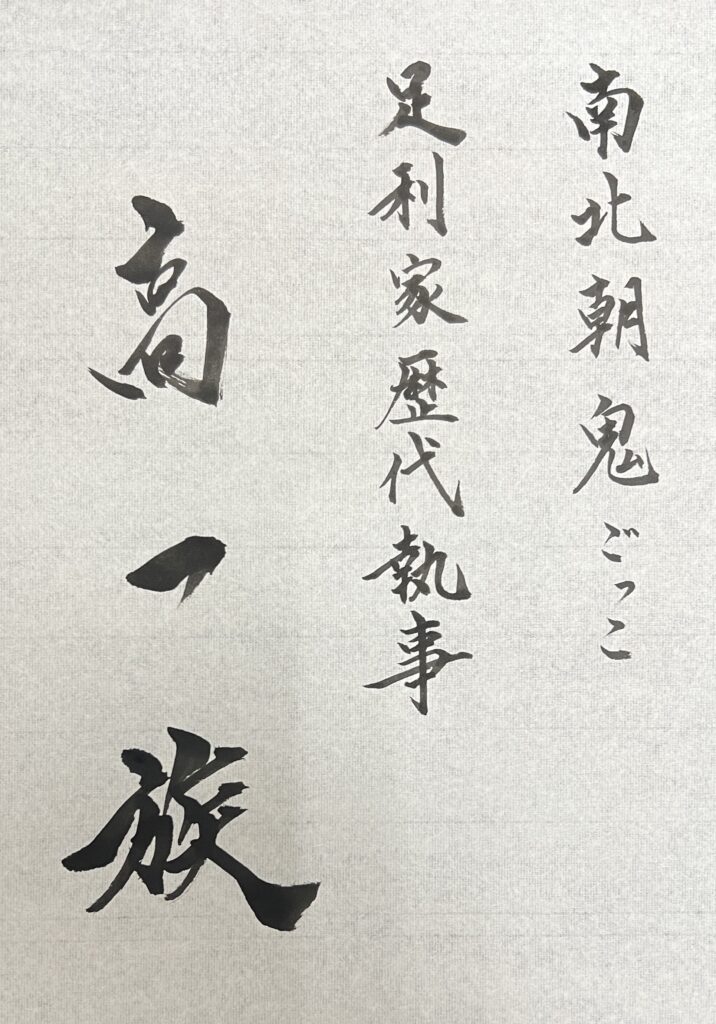 南北朝鬼ごっこ
足利家歴代執事
高一族